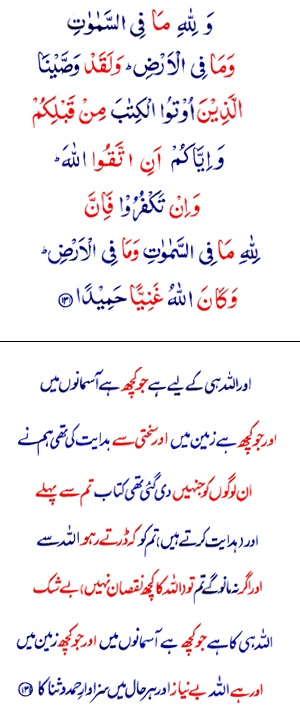 وَ لِلّٰهِ مَا فِى السَّمٰوٰتِ
وَمَا فِى الْاَرْضِ ؕ وَلَقَدْ وَصَّيْنَا
الَّذِيْنَ اُوْتُوا الْكِتٰبَ مِنْ قَبْلِكُمْ
وَ اِيَّاكُمْ اَنِ اتَّقُوا اللّٰهَ ؕ
وَاِنْ تَكْفُرُوْا فَاِنَّ
لِلّٰهِ مَا فِى السَّمٰوٰتِ وَمَا فِى الْاَرْضِ ؕ
وَكَانَ اللّٰهُ غَنِيًّا حَمِيْدًا ﴿۱۳۱﴾
اور اللہ ہی کے لیے ہے جو کچھ ہے آسمانوں میں
اور جو کچھ ہے زمین میں اور سختی سے ہدایت کی تھی ہم نے
ان لوگوں کو جنہیں دی گئی تھی کتاب تم سے پہلے
اور (ہدایت کرتے ہیں) تم کو کہ ڈرتے رہو اللہ سے
اور اگر نہ مانو گے تم تو (اللہ کا کچھ نقصان نہیں) بے شک
اللہ ہی کا ہے جو کچھ ہے آسمانوں میں اور جو کچھ زمین میں
اور ہے اللہ بے نیاز اور ہر حال میں سزاوارِ حمد و ثنا کا ﴿۱۳۱﴾